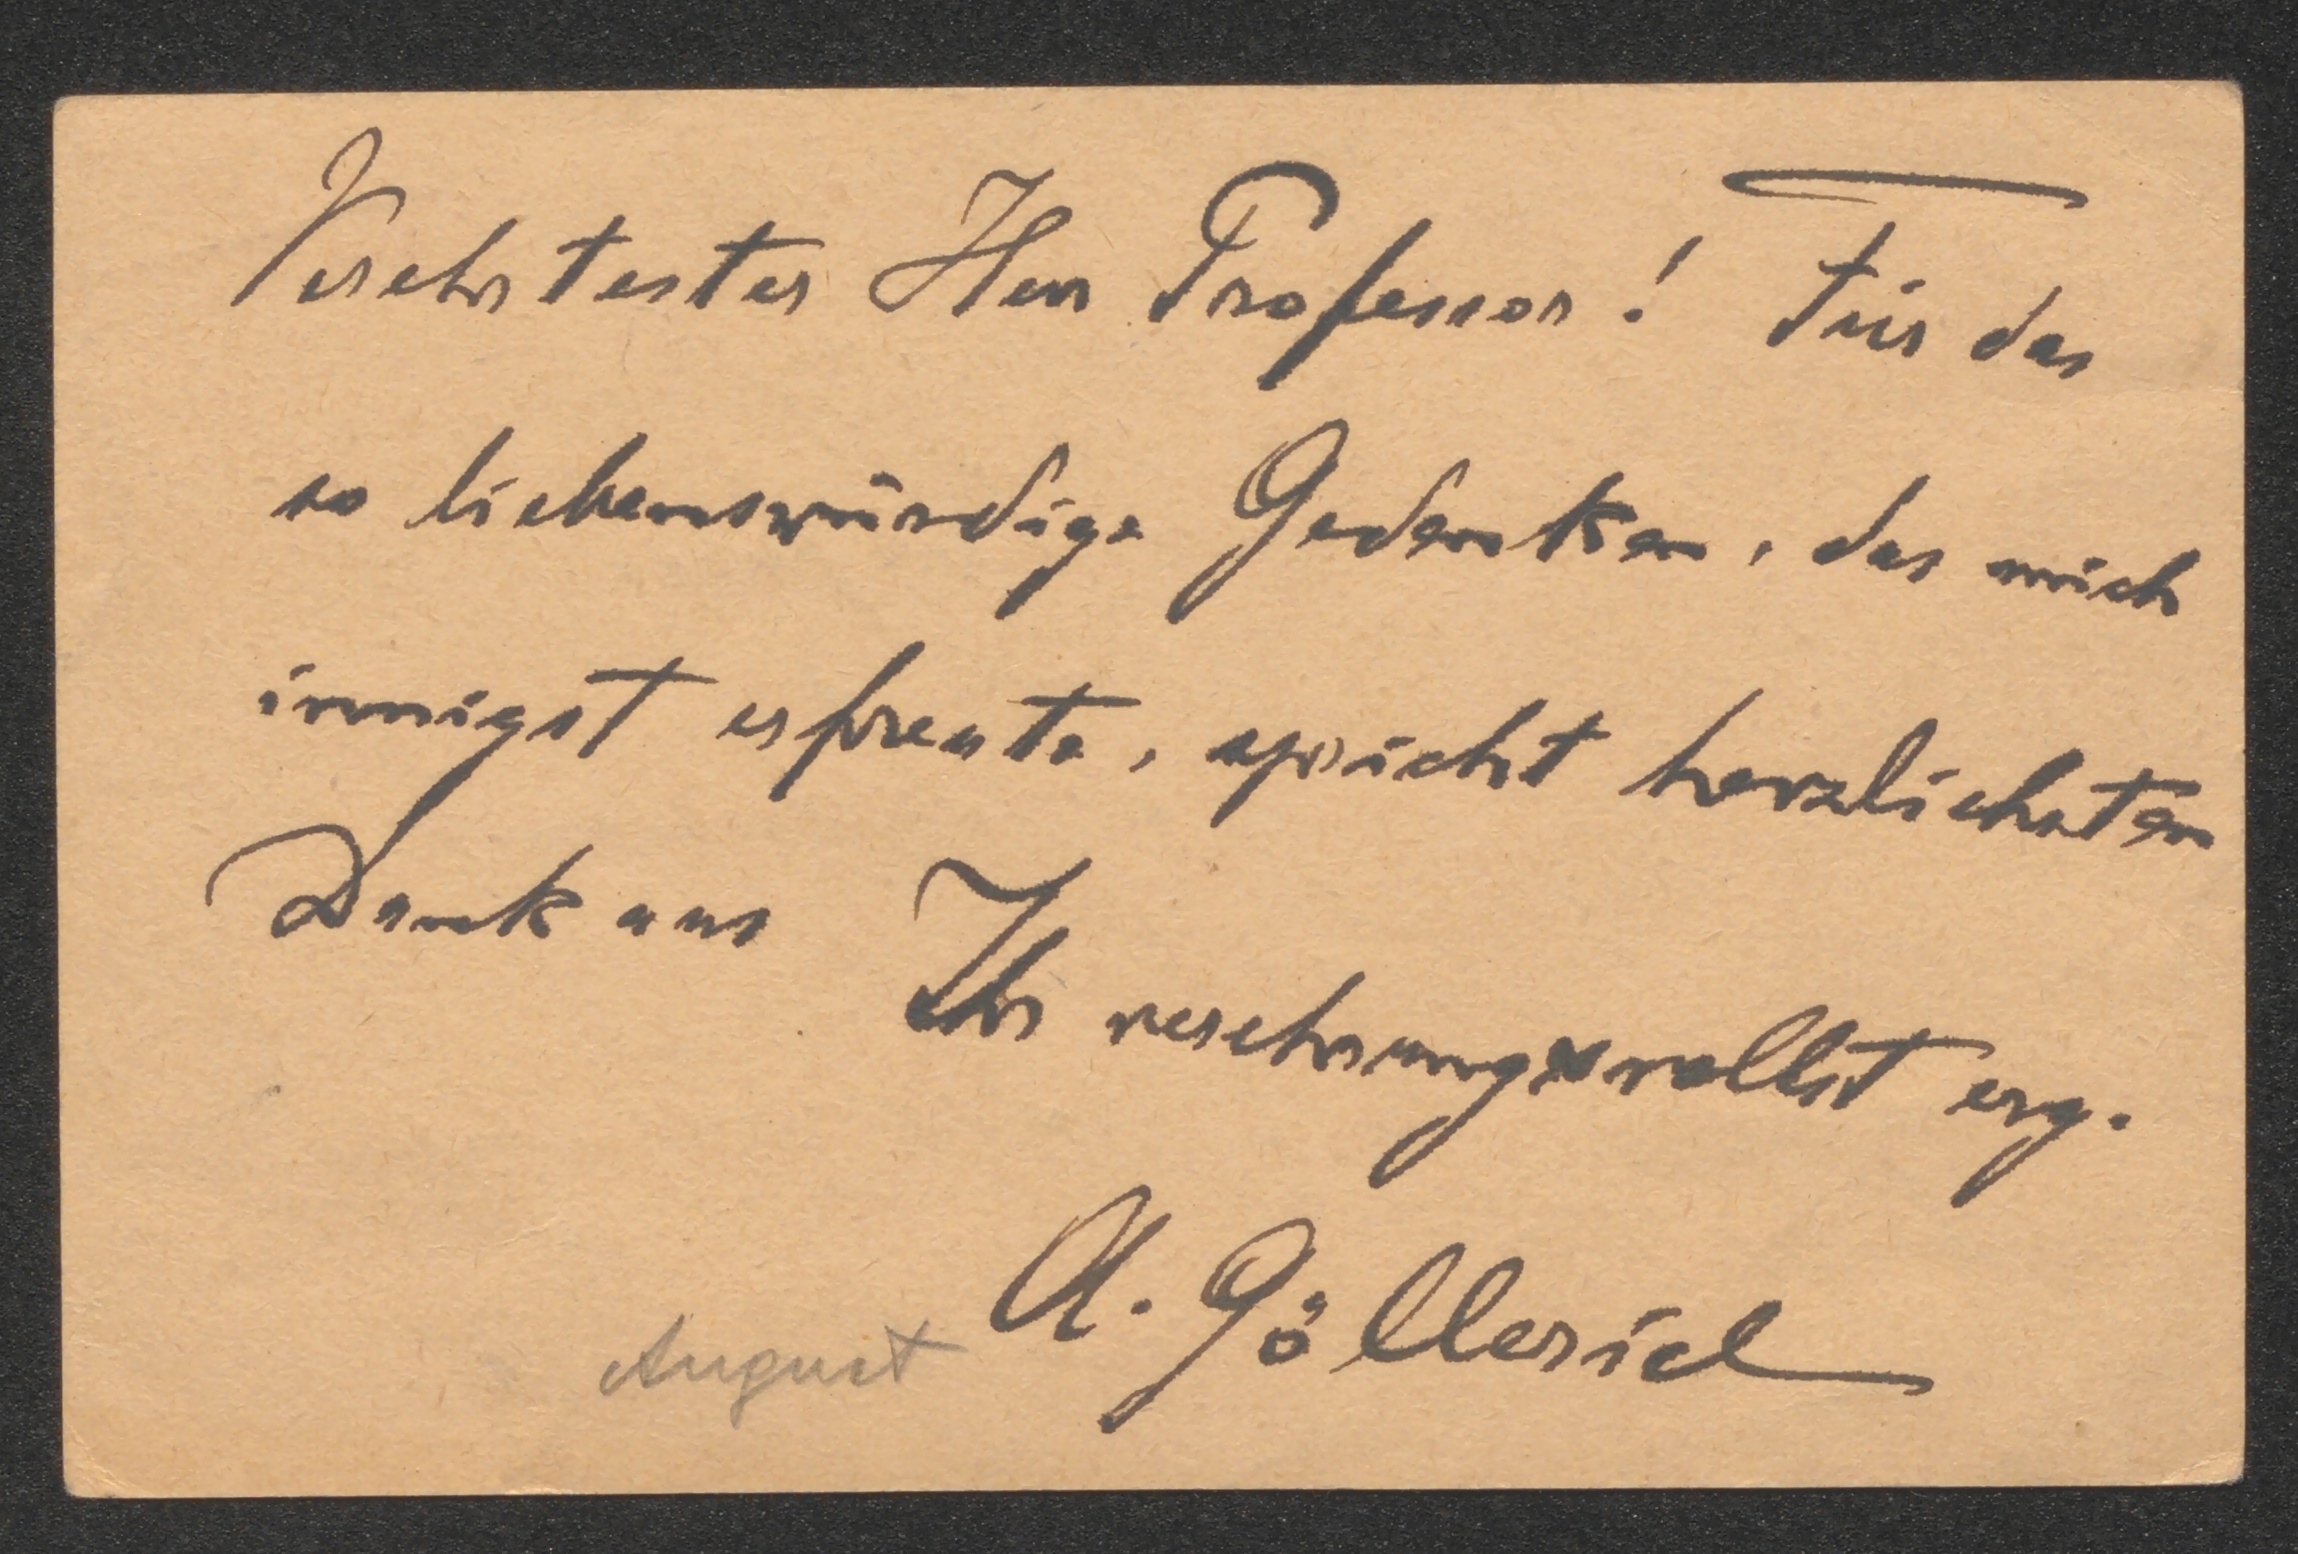 Verehrtester Herr Professor! Für das
so liebenswürdige Gedenken, das mich
innigst erfreute, spricht herzlichsten
Dank aus
Ihr verehrungsvollst erg.
A. Göllerich
August